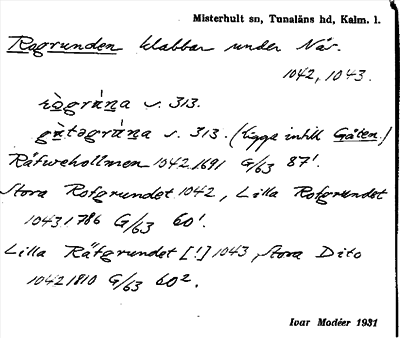 Misterhult sn, Tunaläns hd, Kalm. l.
Ragrunden klabbar under Når.
1042, 1043.
ràgrún̲a s. 313.
gùtəgrún̲a s. 313. (ligga intill Gåten.)
Råfureholmen 1042 1691 G/63 87¹.
Stora Rotgrundet 1042, Lilla Rotgrundet
1043 1786 G/63 60¹.
Lilla Råtgrundet [!] 1043, Stora Dito
1042 1810 G/63 60².
Ivar Modéer 1931